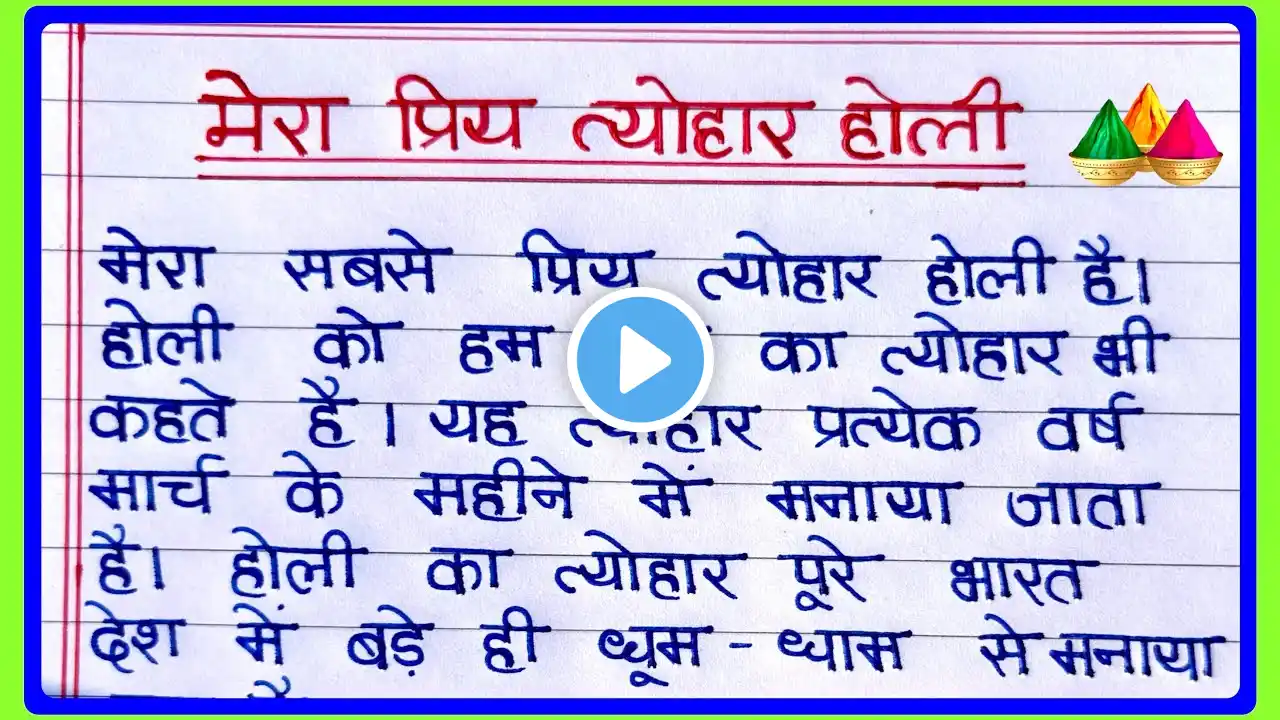 मेरा प्रिय त्योहार होली
मेरा सबसे प्रिय त्योहार होली है।
होली को हम का त्योहार भी
कहते है। यह त्योहार प्रत्येक वर्ष
मार्च के महीने में मनाया जाता
है। होली का त्योहार पूरे भारत
देश में बड़े ही धूम-धाम से मनाया